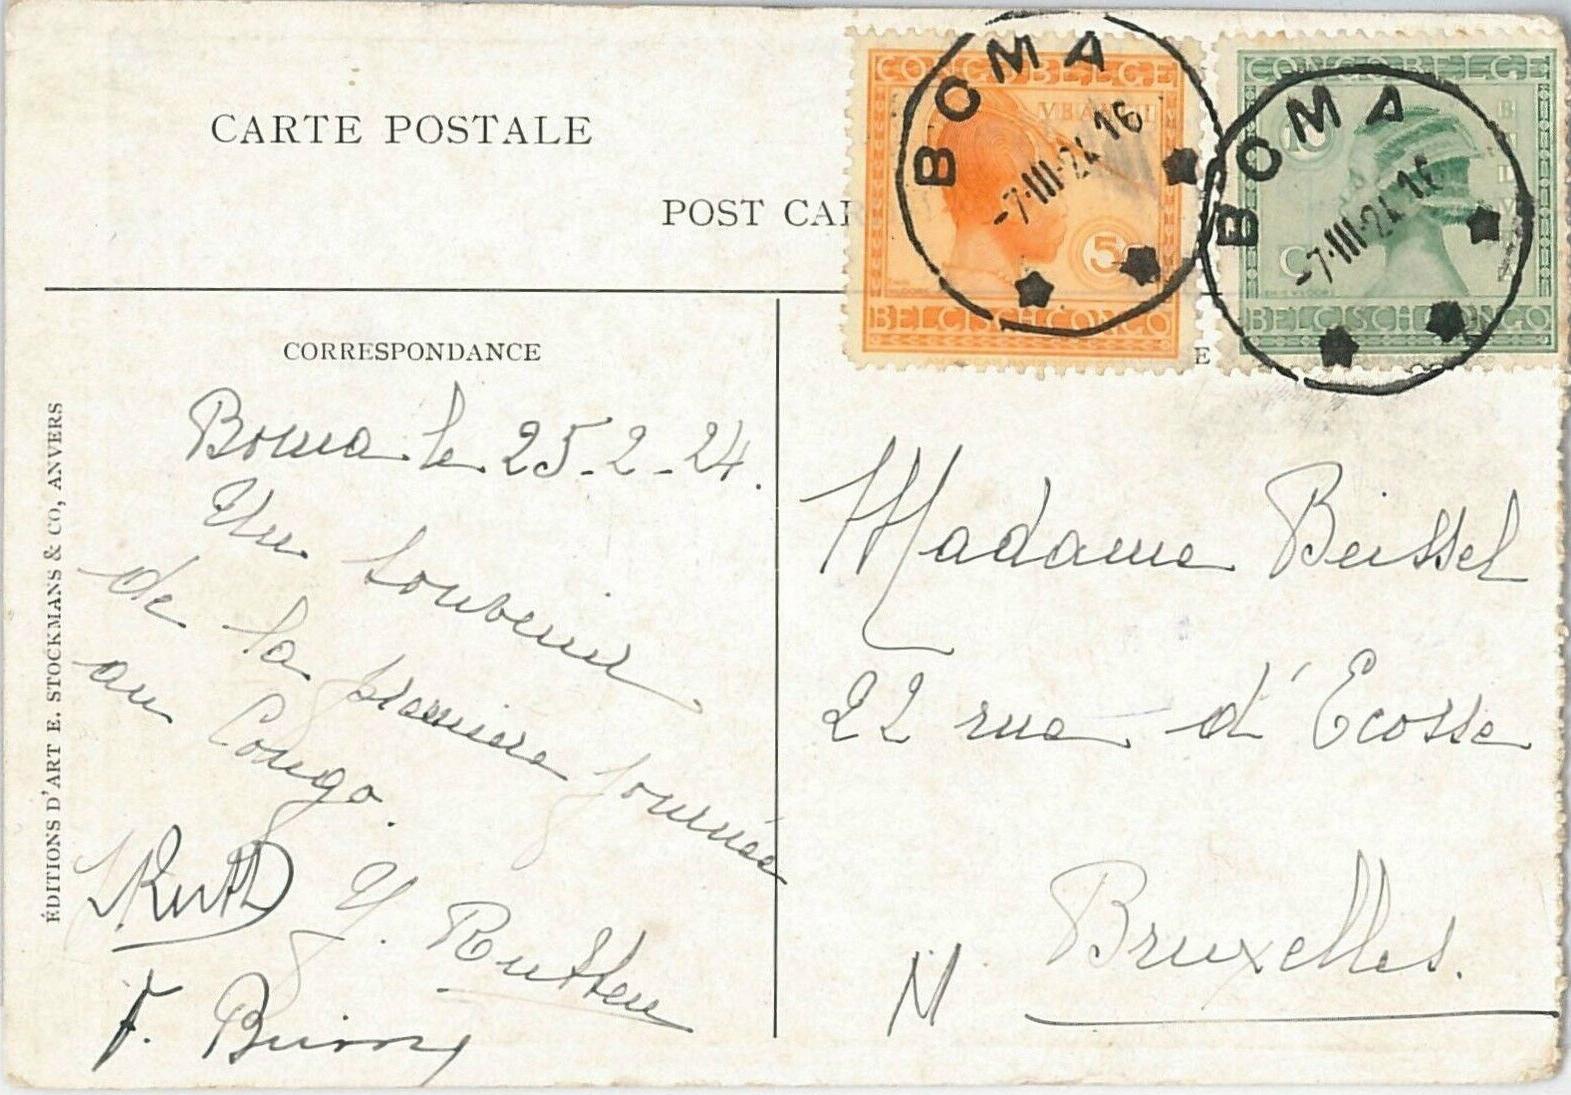 CARTE POSTALE
POST CAR
CONGO BELGE
UBANGI
5
BELGISCH CONGO
BOMA
-7-III-24 16
CONGO BELGE
10
C
BELGISCH CONGO
BOMA
-7-III-24 16
E
CORRESPONDANCE
Boma le 25-2-24.
Un souvenir
de la première journée
au Congo.
Y. Rutten
F.
Madame Beissel
22 rue d'Ecosse
Bruxelles.
N
ÉDITIONS D'ART E. STOCKMANS & CO, ANVERS